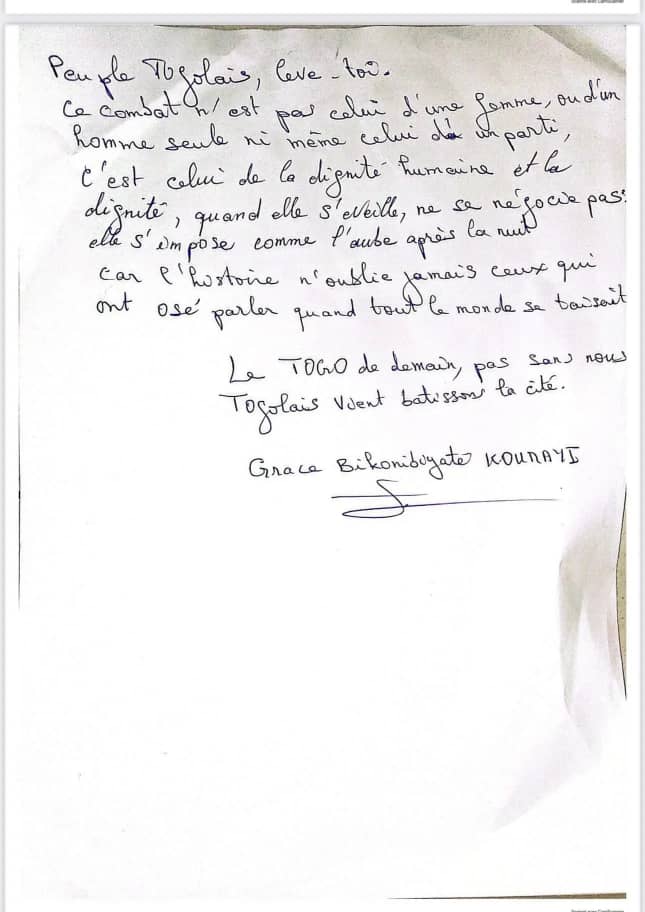 Peuple Togolais, leve-toi.
Ce combat n'est pas celui d'une femme, ou d'un
homme seule ni même celui d'un parti,
C'est celui de la dignité humaine et la
dignité, quand elle s'eveille, ne se négocie pas:
elle s'impose comme l'aube après la nuit
Car l'histoire n'oublie jamais ceux qui
ont osé parler quand tout le monde se taisait
Le TOGO de demain, pas sans nous
Togolais vient batissons la cité.
Grace Bikonibiyate KOUMAYI